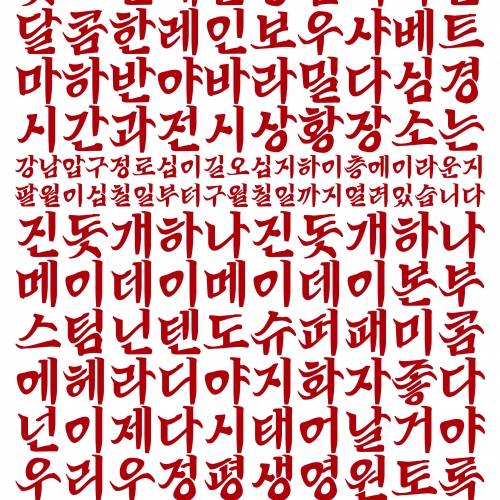 달콤한레인보우샤베트
마하반야바라밀다심경
시간과전시상황장소는
강남압구정로십이길오십지하이층에이라운지
팔월이십칠일부터구월칠일까지열려있습니다
진돗개하나진돗개하나
메이데이메이데이본부
스팀닌텐도슈퍼패미콤
에헤라디야지화자좋다
넌이제다시태어날거야
우리우정평생영원토록